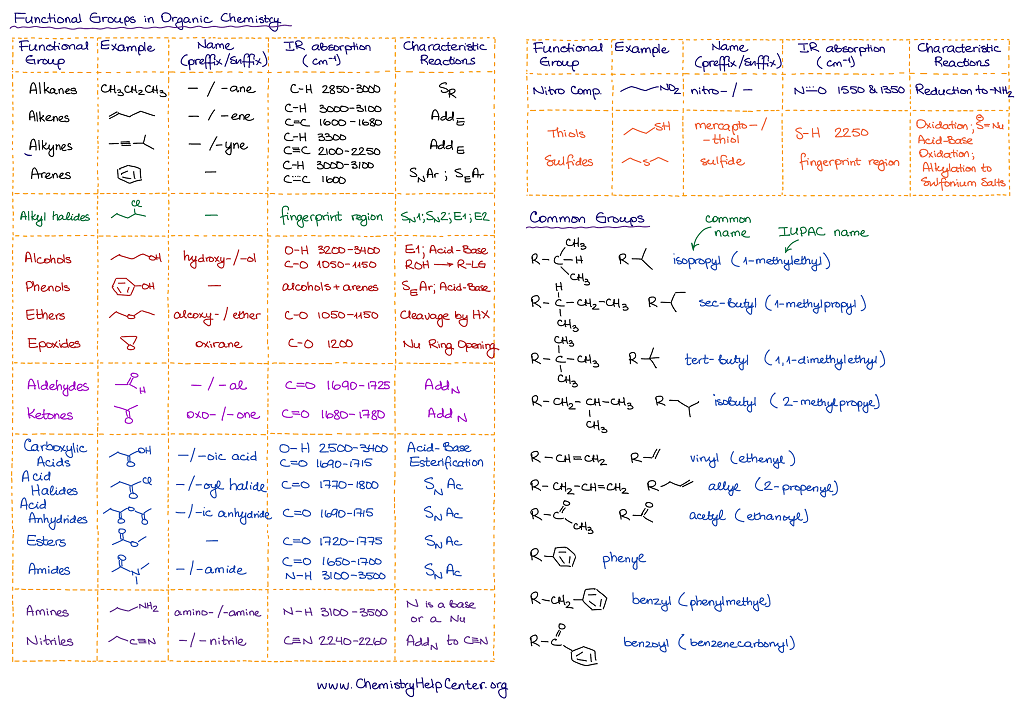 Functional Groups in Organic Chemistry
Functional Group Example Name (preffix/suffix) IR absorption (cm⁻¹) Characteristic Reactions
Alkanes CH₃CH₂CH₃ — / -ane C-H 2850-3000 S_R
Alkenes — / -ene C-H 3000-3100 Add_E
C=C 1600-1680
Alkynes — / -yne C-H 3300 Add_E
C≡C 2100-2250
Arenes — C-H 3000-3100 S_NAr ; S_EAr
C=C 1600
Alkyl halides Cl — fingerprint region S_N1; S_N2; E1; E2
Alcohols OH hydroxy-/-ol O-H 3200-3400 E1; Acid-Base
C-O 1050-1150 ROH → R-LG
Phenols OH — alcohols + arenes S_EAr; Acid-Base
Ethers O alcoxy- / ether C-O 1050-1150 Cleavage by HX
Epoxides O oxirane C-O 1200 Nu Ring Opening
Aldehydes O H — / -al C=O 1690-1725 Add_N
Ketones O oxo- / -one C=O 1680-1780 Add_N
Carboxylic Acids O OH — / -oic acid O-H 2500-3400 Acid-Base
C=O 1690-1715 Esterification
Acid Halides O Cl — / -oyl halide C=O 1770-1800 S_N Ac
Acid Anhydrides O O O — / -ic anhydride C=O 1690-1715 S_N Ac
Esters O O — C=O 1720-1775 S_N Ac
Amides O N — / -amide C=O 1650-1700 S_N Ac
N-H 3100-3500
Amines NH₂ amino- / -amine N-H 3100-3500 N is a base or a Nu
Nitriles C≡N — / - nitrile C≡N 2240-2260 Add_N to C≡N
www.ChemistryHelpCenter.org
Functional Group Example Name (preffix/suffix) IR absorption (cm⁻¹) Characteristic Reactions
Nitro Comp. NO₂ nitro- / — N=O 1550 & 1350 Reduction to -NH₂
Thiols SH mercapto- / -thiol S-H 2250 Oxidation; S=Nu
Acid-Base
Sulfides S sulfide fingerprint region Oxidation;
Alkylation to
Sulfonium Salts
Common Groups
common name IUPAC name
R-C-H CH₃ CH₃ R isopropyl (1-methylethyl)
R-C-CH₂-CH₃ H CH₃ R sec-butyl (1-methylpropyl)
R-C-CH₃ CH₃ CH₃ R tert-butyl (1,1-dimethylethyl)
R-CH₂-CH-CH₃ CH₃ R isobutyl (2-methylpropyl)
R-CH=CH₂ R vinyl (ethenyl)
R-CH₂-CH=CH₂ R allyl (2-propenyl)
R-C O CH₃ R O acetyl (ethanoyl)
R phenyl
R-CH₂ benzyl (phenylmethyl)
R-C O benzoyl (benzenecarbonyl)